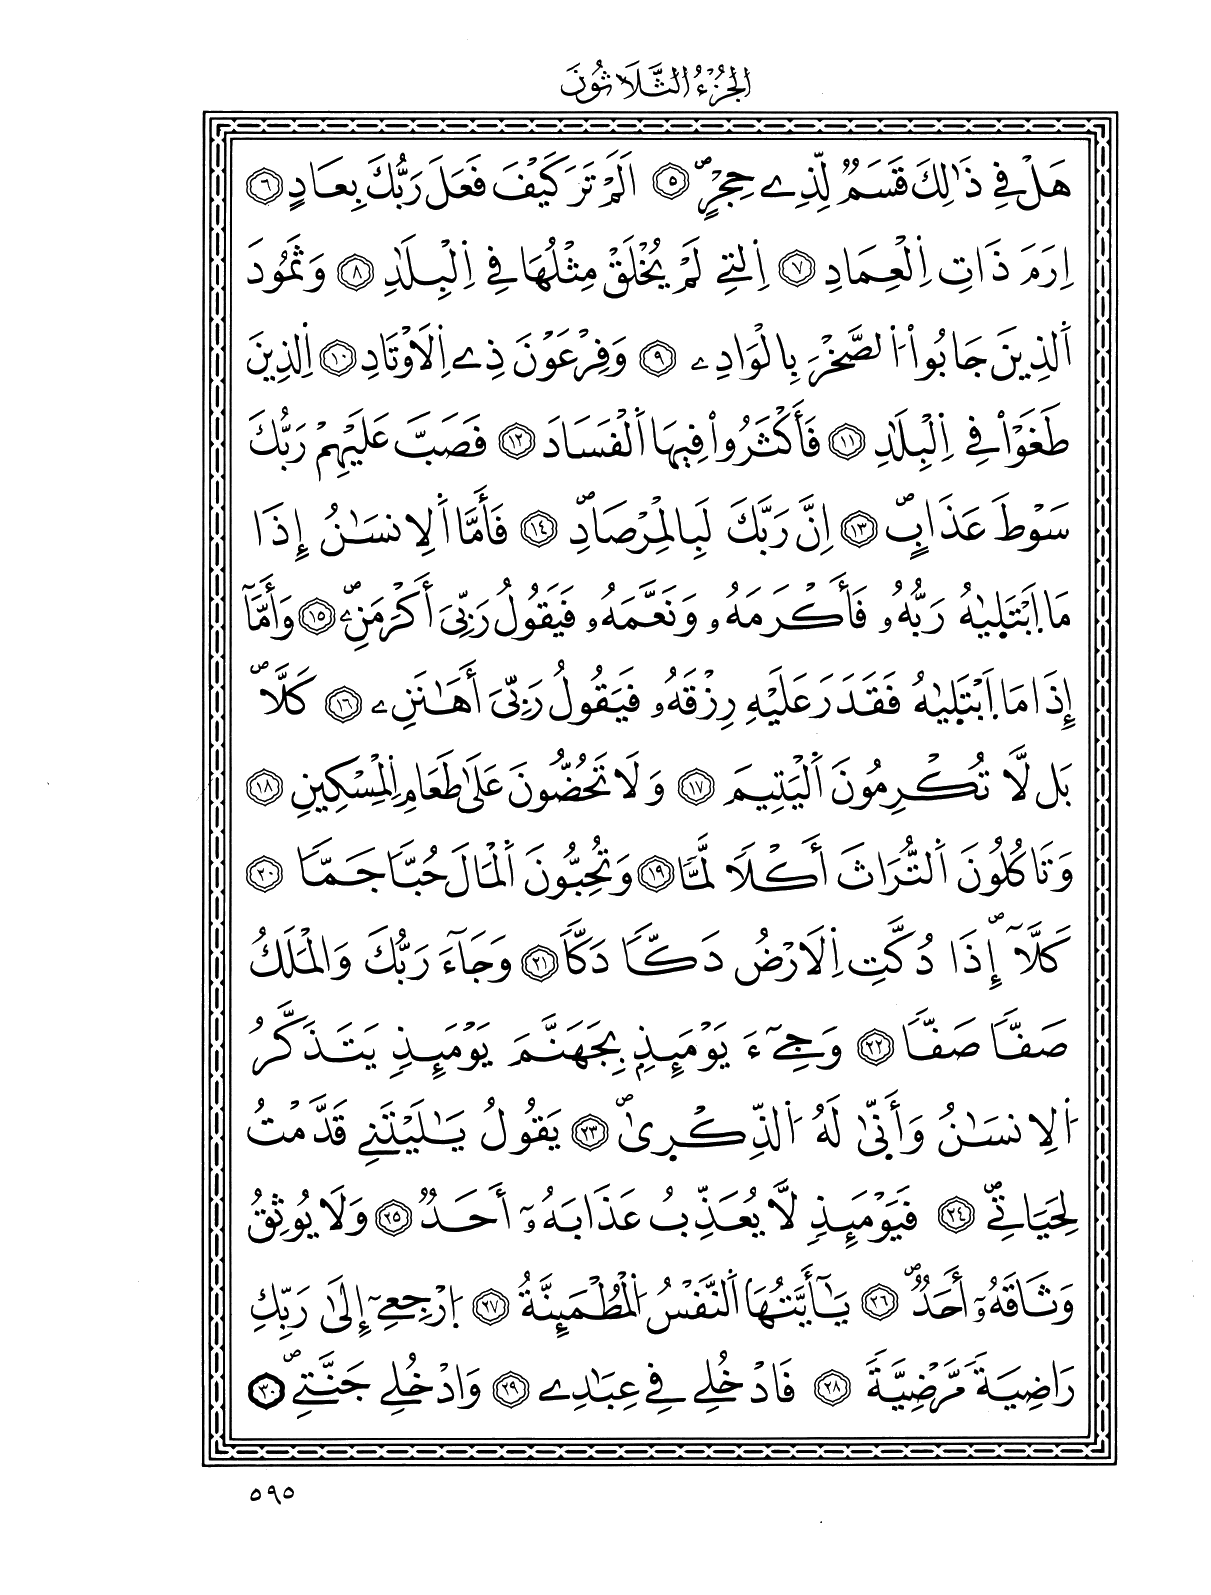 الجُزْءُ الثَّلَاثُونَ
هَلْ فِے ذَٰلِكَ قَسَمٌ لِّذِے حِجْرٍۖ ٥ اَلَمْ تَرَ كَيْفَ فَعَلَ رَبُّكَ بِعَادٍ ٦
اِرَمَ ذَاتِ اِ۬لْعِمَادِ ٧ اِ۬لتِے لَمْ يُخْلَقْ مِثْلُهَا فِے اِ۬لْبِلَٰدِ ٨ وَثَمُودَ
اَ۬لذِينَ جَابُواْ اُ۬لصَّخْرَ بِالْوَادِۦ ٩ وَفِرْعَوْنَ ذِے اِ۬لَاوْتَادِ ١٠ اِ۬لذِينَ
طَغَوْاْ فِے اِ۬لْبِلَٰدِ ١١ فَأَكْثَرُواْ فِيهَا اَ۬لْفَسَادَ ١٢ فَصَبَّ عَلَيْهِمْ رَبُّكَ
سَوْطَ عَذَابٍۖ ١٣ اِنَّ رَبَّكَ لَبِالْمِرْصَادِۖ ١٤ فَأَمَّا اَ۬لِانسَٰنُ إِذَا
مَا اَ۪بْتَل۪يٰهُ رَبُّهُۥ فَأَكْرَمَهُۥ وَنَعَّمَهُۥ فَيَقُولُ رَبِّيَ أَكْرَمَنِۦۖ ١٥ وَأَمَّآ
إِذَا مَا اَ۪بْتَل۪يٰهُ فَقَدَرَ عَلَيْهِ رِزْقَهُۥ فَيَقُولُ رَبِّيَ أَهَٰنَنِۦ ١٦ كَلَّاۖ
بَل لَّا تُكْرِمُونَ اَ۬لْيَتِيمَ ١٧ وَلَا تَحُضُّونَ عَلَىٰ طَعَامِ اِ۬لْمِسْكِينِ ١٨
وَتَاكُلُونَ اَ۬لتُّرَاثَ أَكْلاٗ لَّمّاٗ ١٩ وَتُحِبُّونَ اَ۬لْمَالَ حُبّاٗ جَمّاٗ ٢٠
كَلَّآۖ إِذَا دُكَّتِ اِ۬لَارْضُ دَكّاٗ دَكّاٗ ٢١ وَجَآءَ رَبُّكَ وَالْمَلَكُ
صَفّاٗ صَفّاٗ ٢٢ وَجِےٓءَ يَوْمَئِذِۢ بِجَهَنَّمَ يَوْمَئِذٖ يَتَذَكَّرُ
اُ۬لِانسَٰنُ وَأَنّ۪يٰ لَهُ اُ۬لذِّكْر۪يٰۖ ٢٣ يَقُولُ يَٰلَيْتَنِے قَدَّمْتُ
لِحَيَاتِےۖ ٢٤ فَيَوْمَئِذٖ لَّا يُعَذِّبُ عَذَابَهُۥٓ أَحَدٌ ٢٥ وَلَا يُوثِقُ
وَثَاقَهُۥٓ أَحَدٌۖ ٢٦ يَٰٓأَيَّتُهَا اَ۬لنَّفْسُ اُ۬لْمُطْمَئِنَّةُ ٢٧ اُ۪رْجِعِےٓ إِلَىٰ رَبِّكِ
رَاضِيَةٗ مَّرْضِيَّةٗ ٢٨ فَادْخُلِے فِے عِبَٰدِے ٢٩ وَادْخُلِے جَنَّتِےۖ ٣٠
٥٩٥